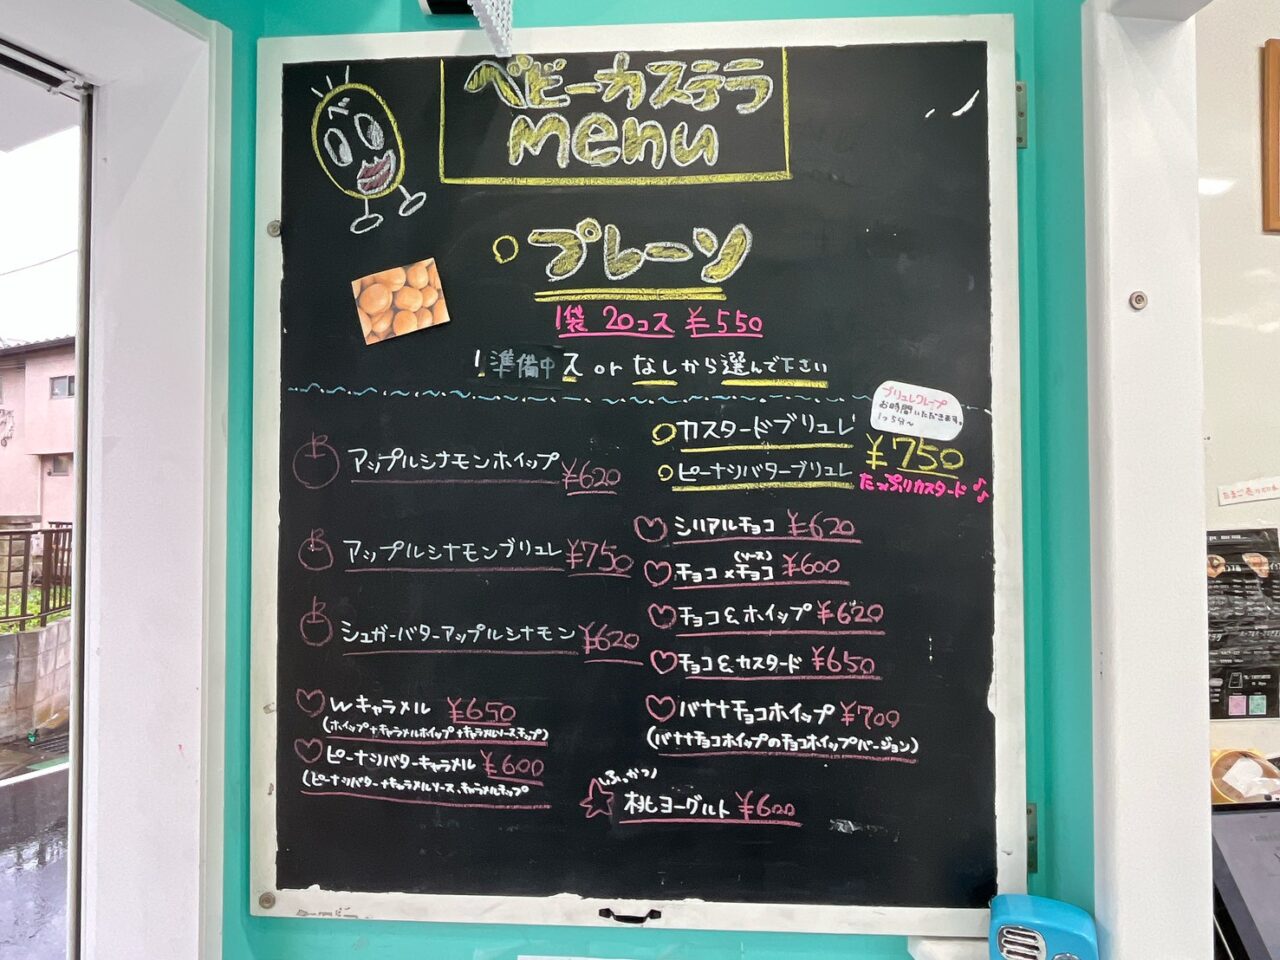 ベビーカステラ
menu
プレーン
1袋 20コス ¥550
準備中 ス or なしから選んで下さい
ブリュレクレープ
お時間いただきます。
1つ5分〜
カスタードブリュレ
ピーナッツバターブリュレ
¥750
たっぷりカスタード♪♪
アップルシナモンホイップ ¥620
アップルシナモンブリュレ ¥750
シュガーバターアップルシナモン ¥620
Wキャラメル ¥650
(ホイップ+キャラメルホイップ+キャラメルソース、チップ)
ピーナッツバターキャラメル ¥600
(ピーナッツバター+キャラメルソース、キャラメルチップ
シリアルチョコ ¥620
チョコ×チョコ(ソース) ¥600
チョコ&ホイップ ¥620
チョコ&カスタード ¥650
バナナチョコホイップ ¥700
(バナナチョコホイップのチョコホイップバージョン)
\ふっかつ/
桃ヨーグルト ¥600